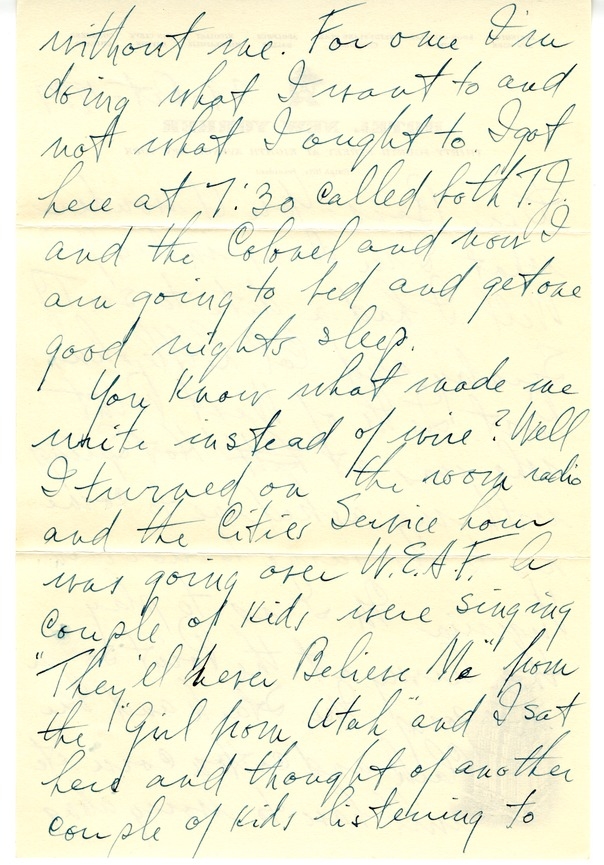 without me. For once I'm
doing what I want to and
not what I ought to. I got
here at 7:30 called both T.J.
and the Colonel and now I
am going to bed and get one
good nights sleep.
You know what made me
write instead of wire? Well
I turned on the room radio
and the Cities Service hour
was going over W.E.A.F. A
couple of kids were singing
"They'll never Believe Me" from
the "Girl from Utah" and I sat
here and thought of another
couple of kids listening to